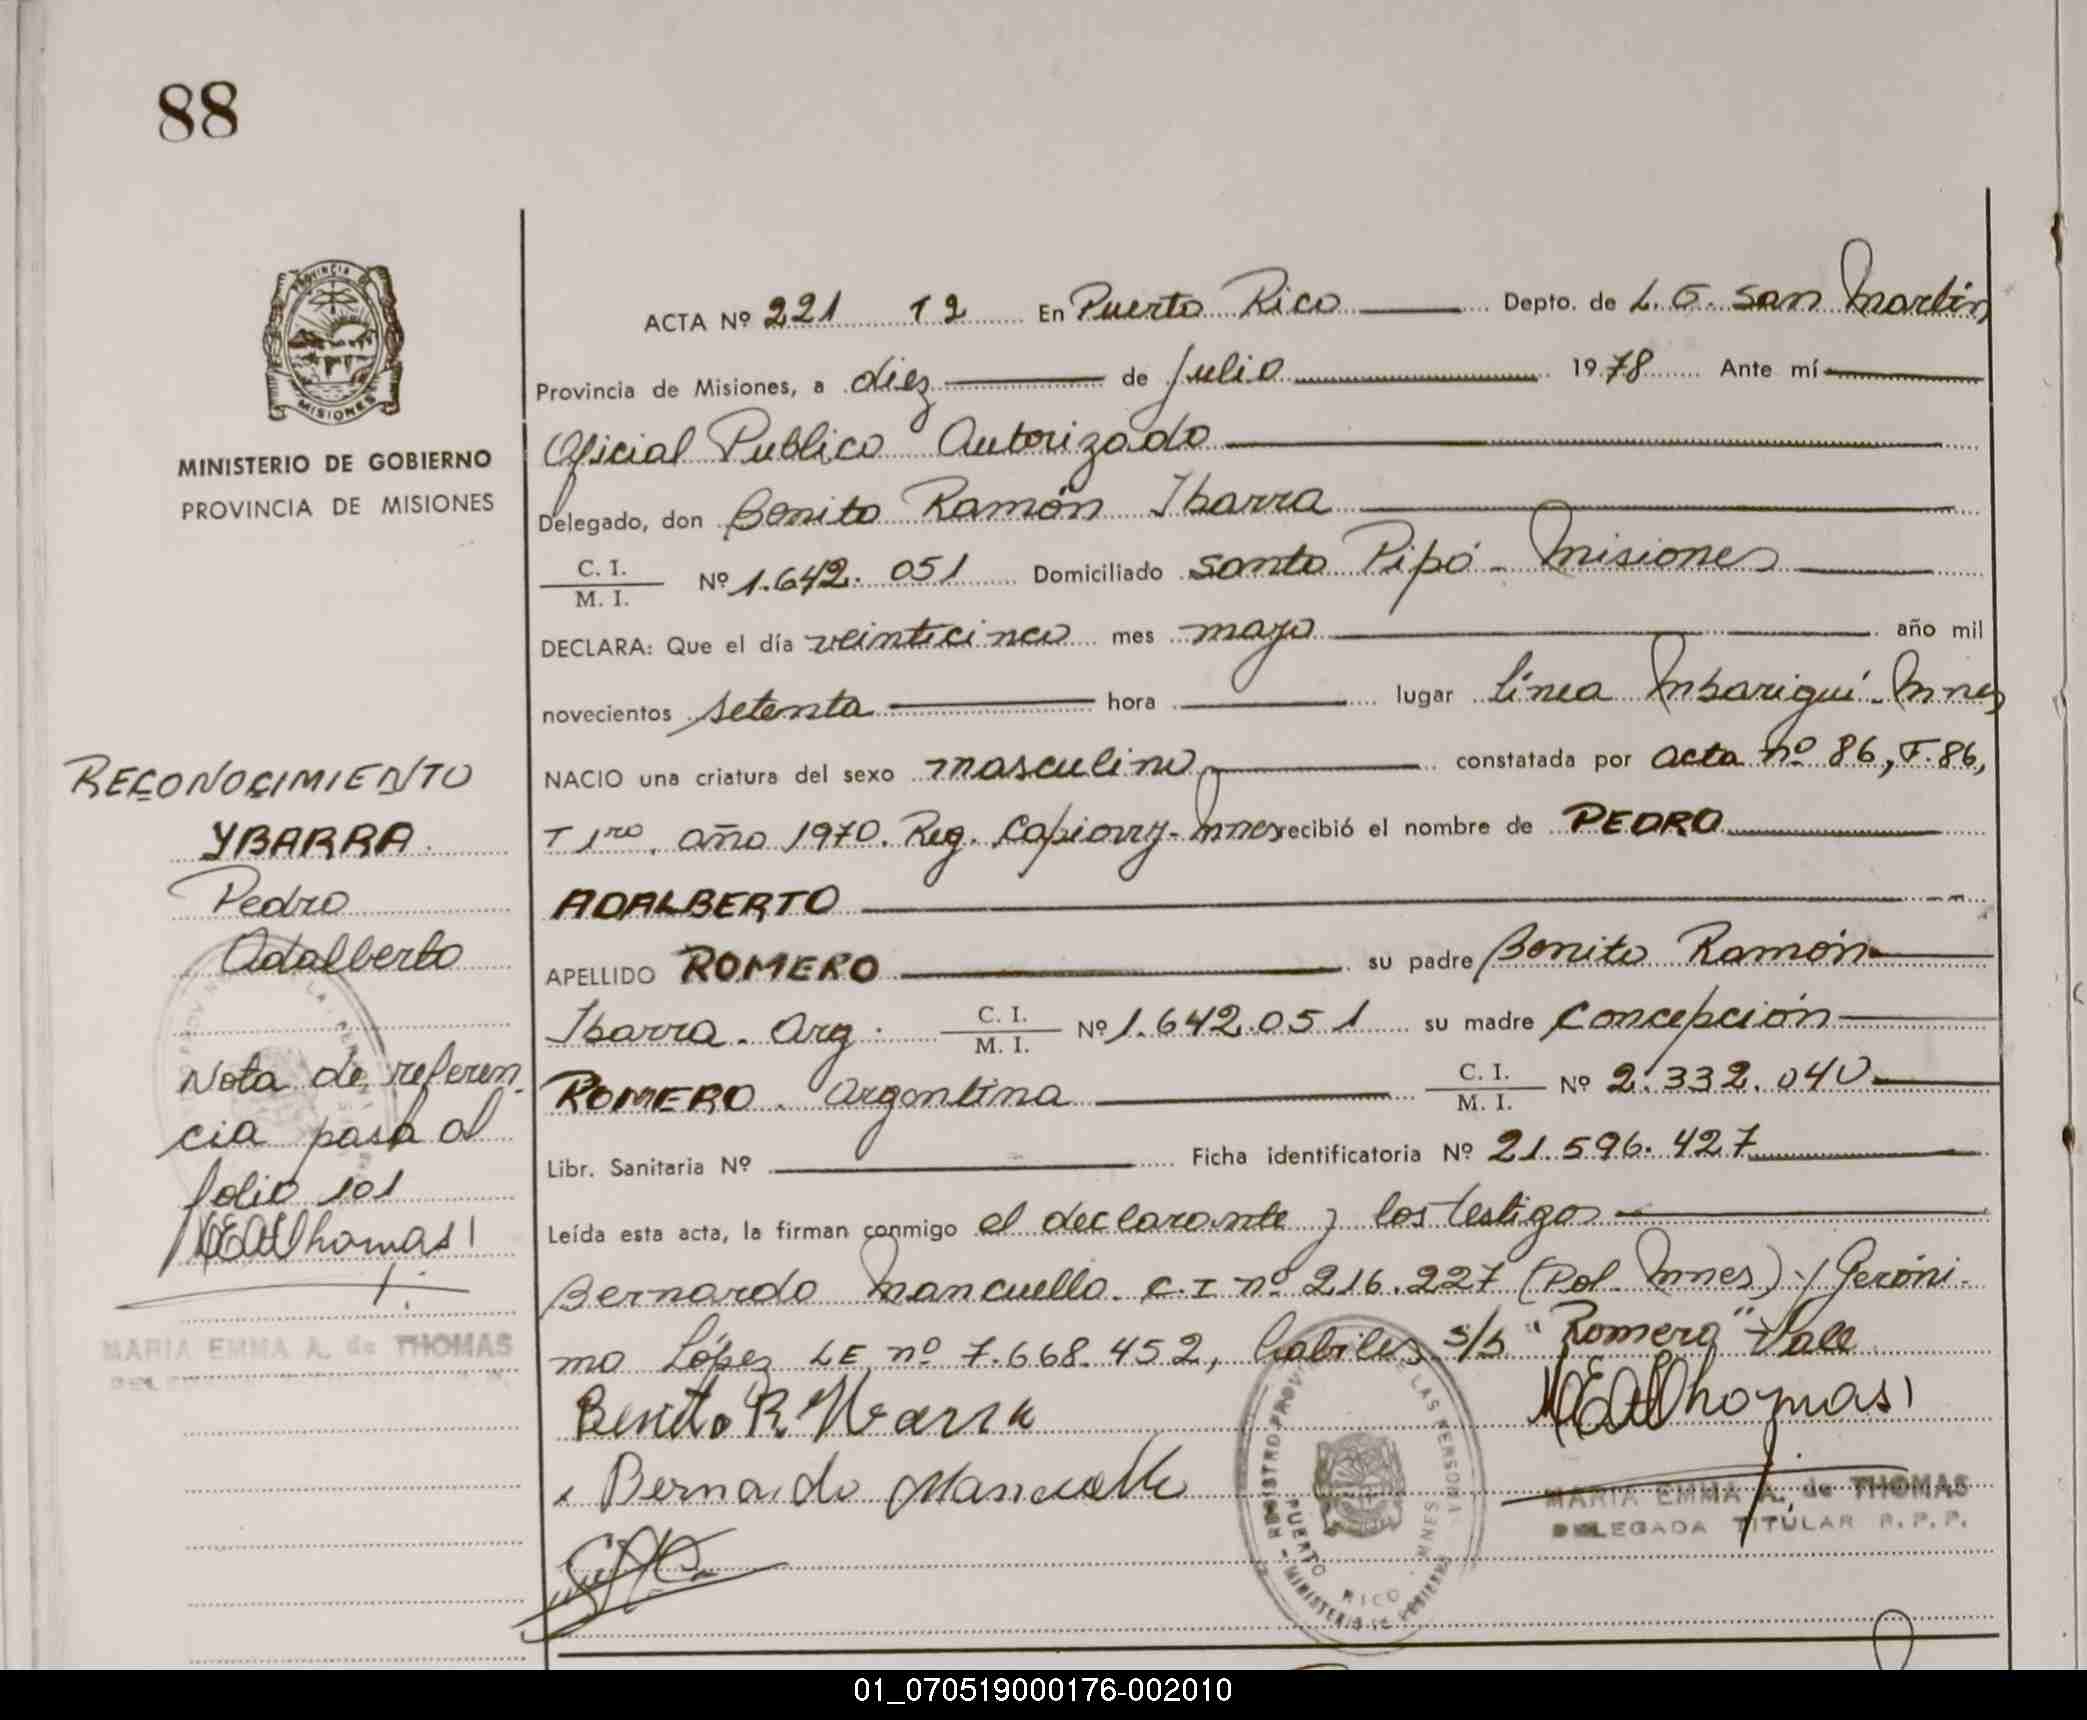 88
PROVINCIA DE
MISIONES
MINISTERIO DE GOBIERNO
PROVINCIA DE MISIONES
ACTA Nº 221 T 2 En Puerto Rico Depto. de L. G. San Martín
Provincia de Misiones, a diez de Julio 1978 Ante mí
Oficial Publico Autorizado
Delegado, don Benito Ramón Ibarra
C. I.
M. I. Nº 1.642.051 Domiciliado Santo Pipó - Misiones
DECLARA: Que el día veinticinco mes mayo año mil
novecientos setenta hora lugar Línea Mbariguí - Mnes
NACIO una criatura del sexo masculino constatada por acta nº 86, F. 86,
T 1ro. año 1970. Reg. Capiovy - Mnes recibió el nombre de PEDRO
ADALBERTO
APELLIDO ROMERO su padre Benito Ramón
Ibarra - Arg. C. I.
M. I. Nº 1.642.051 su madre Concepción
ROMERO. Argentina C. I.
M. I. Nº 2.332.040
Libr. Sanitaria Nº Ficha identificatoria Nº 21.596.427
Leída esta acta, la firman conmigo el declarante y los testigos
Bernardo Mancuello. C.I nº 216.227 (Pol. Mnes) y Geróni-
mo López LE nº 7.668.452, habiles s/b "Romero" Vale
Benito R. Ibarra
Bernardo Mancuello
MEAThomas
MARIA EMMA A. de THOMAS
DELEGADA TITULAR R. P. P.
REGISTRO PROV LAS PERSONAS
PUERTO RICO MNES
MINISTERIO DE GOBIERNO
RECONOCIMIENTO
YBARRA
Pedro
Adalberto
Nota de referen-
cia pasa al
folio 101
MEAThomas
MARIA EMMA A. de THOMAS
01_070519000176-002010